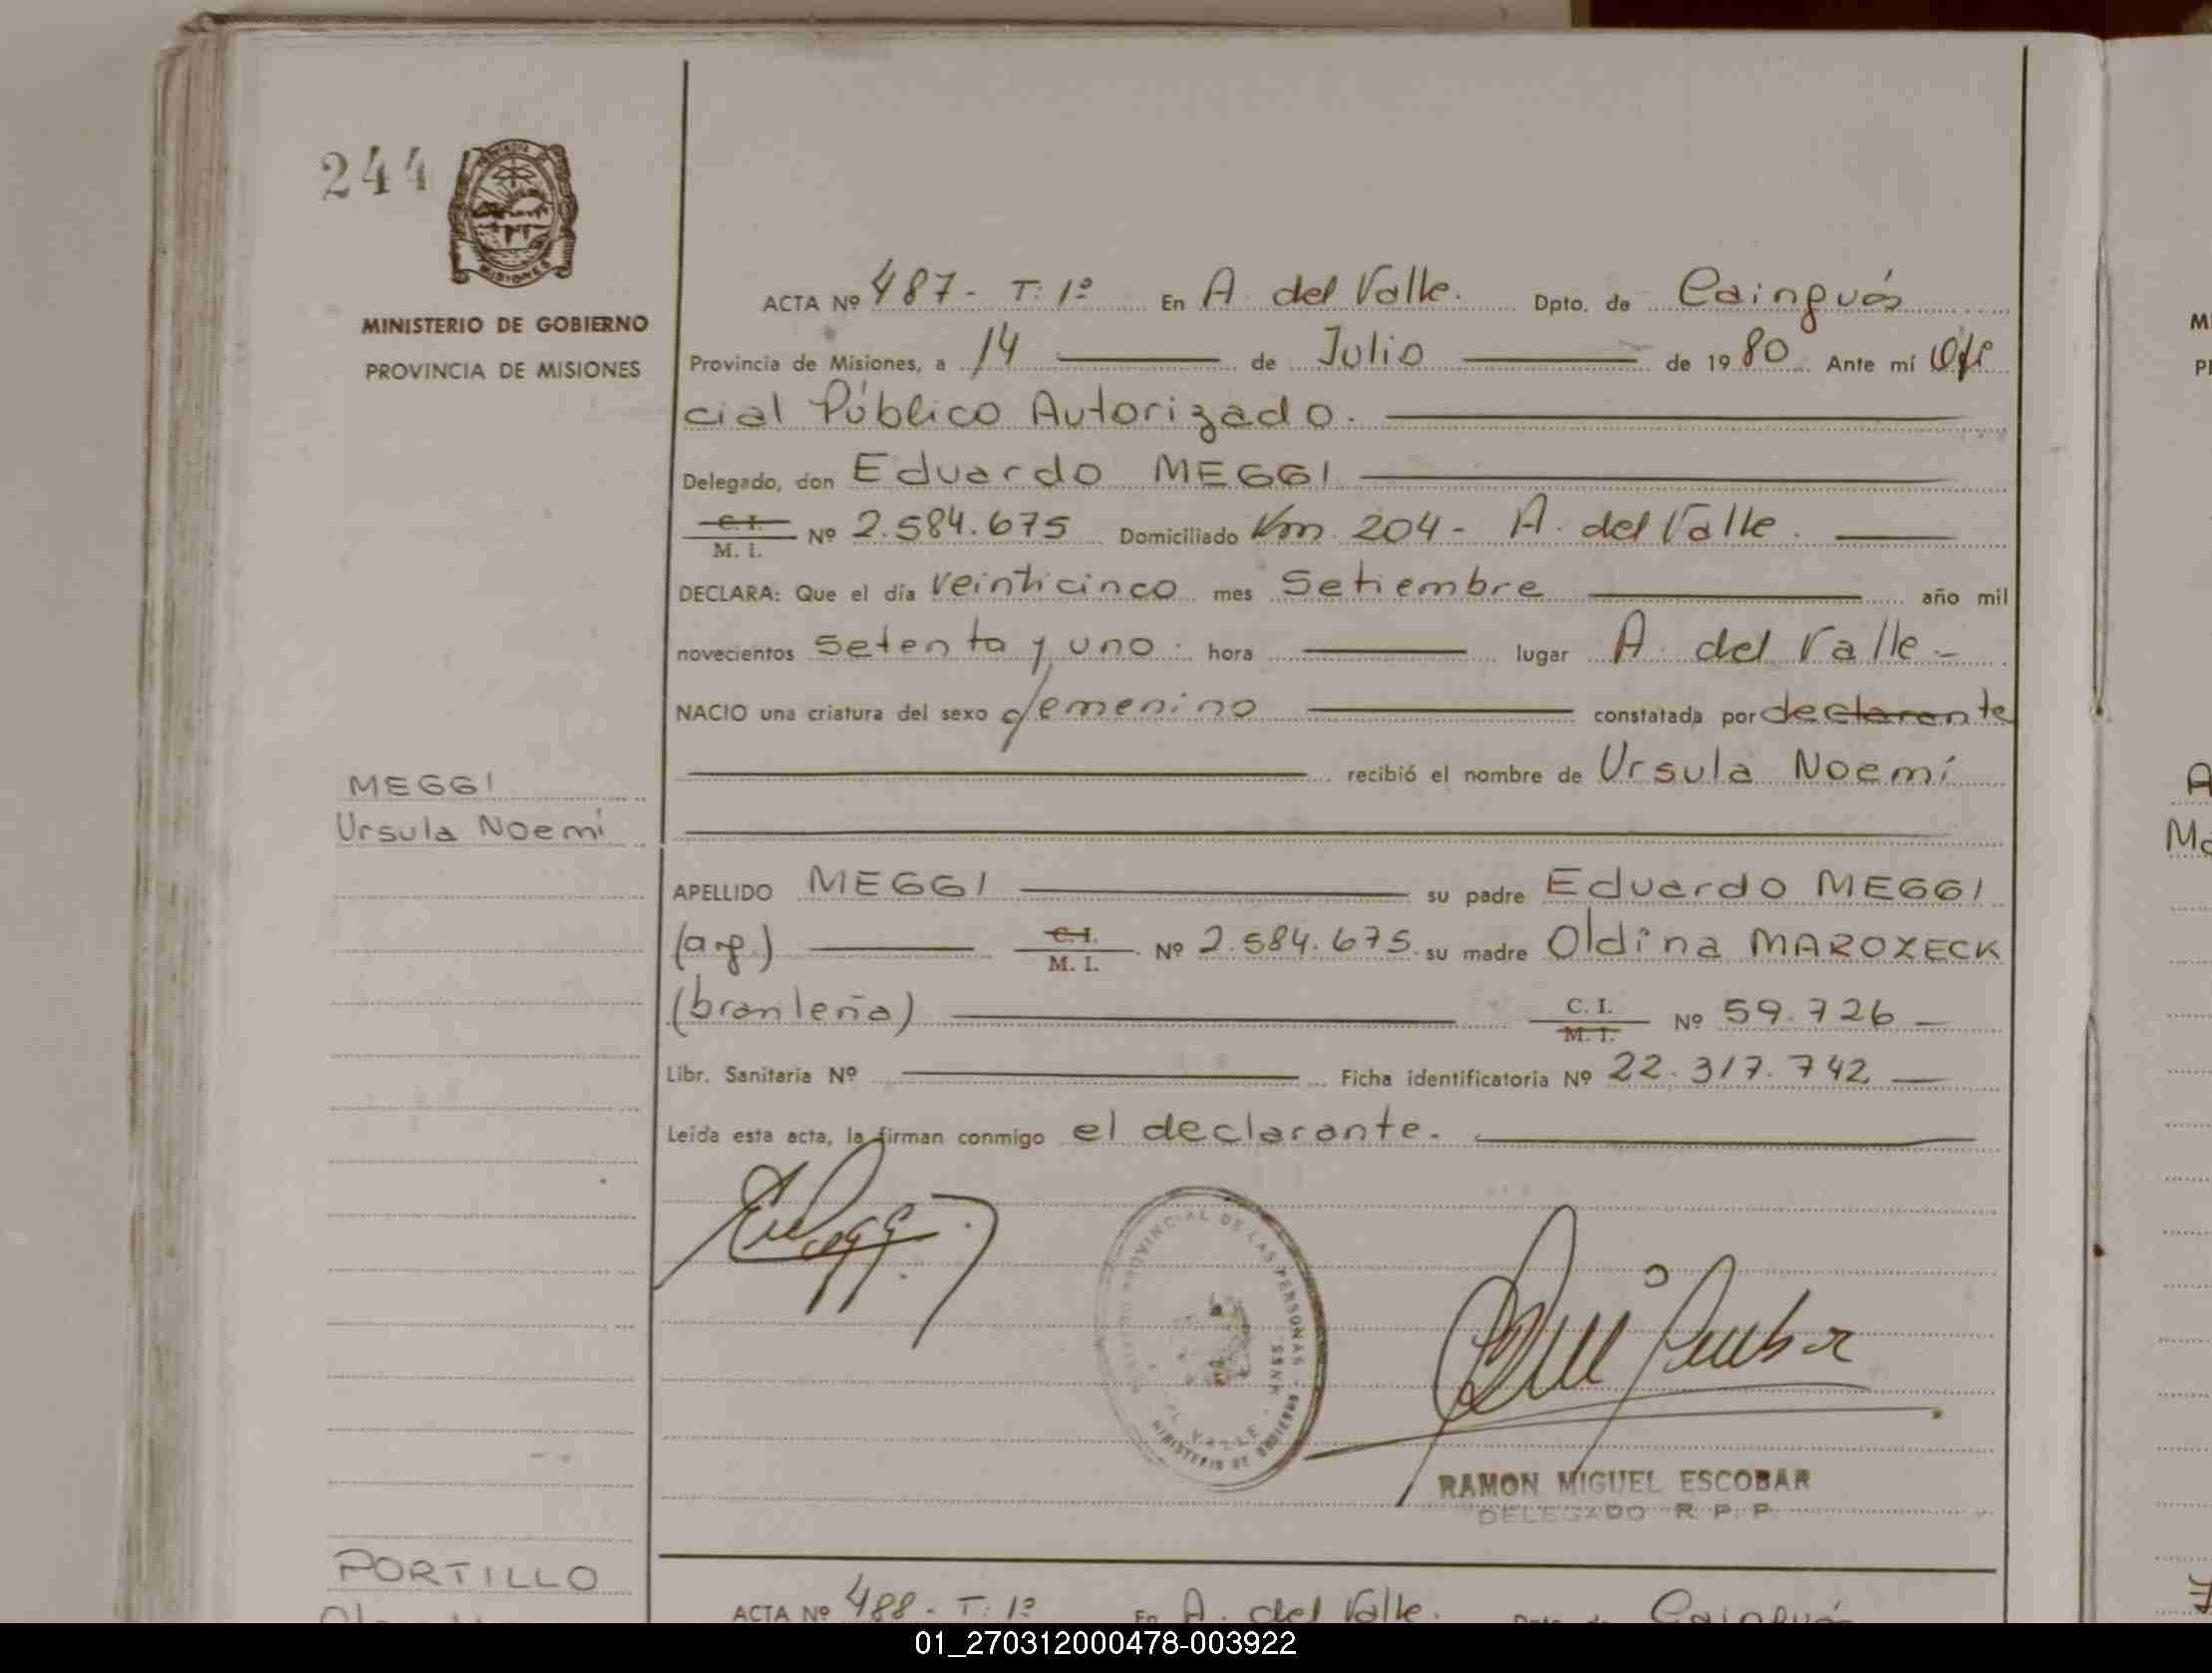 244
MISIONES
MINISTERIO DE GOBIERNO
PROVINCIA DE MISIONES
ACTA Nº 487- T: 1º En A. del Valle. Dpto. de Cainguás
Provincia de Misiones, a 14 de Julio de 1980 Ante mí Ofi
cial Público Autorizado.
Delegado, don Eduardo MEGGI
C. I.
M. I. Nº 2.584.675 Domiciliado Km 204- A. del Valle.
DECLARA: Que el día veinticinco mes Setiembre año mil
novecientos setenta y uno. hora lugar A. del Valle-
NACIO una criatura del sexo femenino constatada por declarante
recibió el nombre de Ursula Noemí
MEGGI
Ursula Noemí
APELLIDO MEGGI su padre Eduardo MEGGI
(arg.) C. I.
M. I. Nº 2.584.675. su madre Oldina MAROXECK
(brasileña) C. I.
M. I. Nº 59.726-
Libr. Sanitaria Nº Ficha identificatoria Nº 22.317.742
Leída esta acta, la firman conmigo el declarante.
PROVINCIAL DE LAS PERSONAS
VALLE - MNES.
MINISTERIO DE GOBIERNO
RAMON MIGUEL ESCOBAR
DELEGADO R. P. P.
PORTILLO
ACTA Nº 488- T: 1º En A. del Valle. Dpto. de Cainguás
01_270312000478-003922